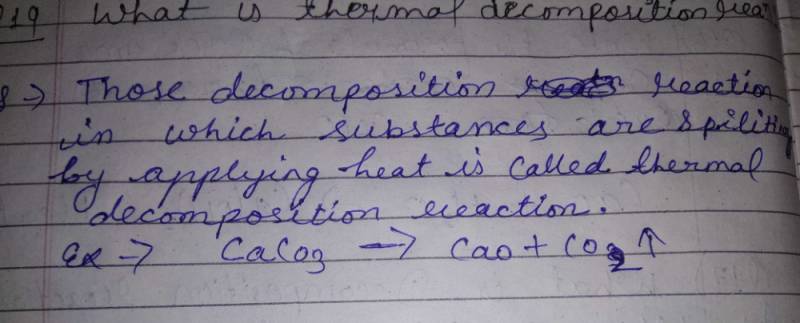 19 What is thermal decomposition rea
8→ Those decomposition reaction
in which substances are spiliting
by applying heat is called thermal
decomposition reaction.
Ex → CaCO3 → CaO + CO2 ↑